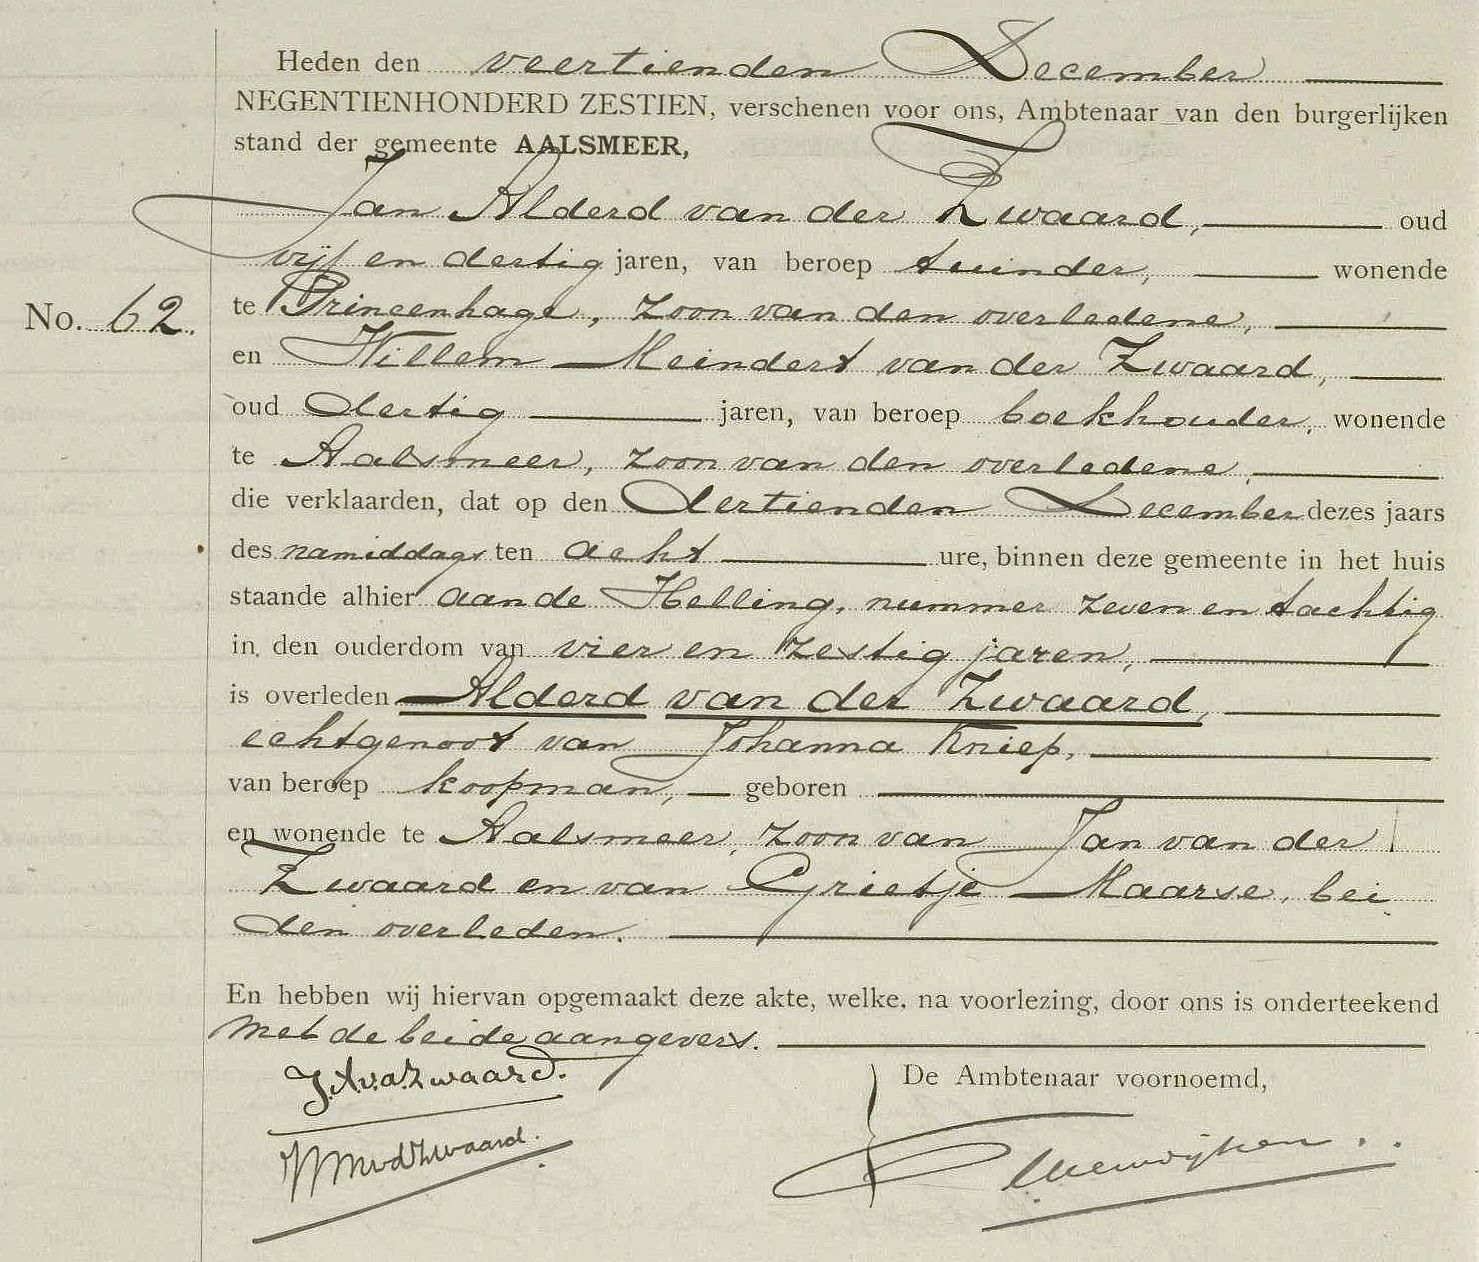 Heden den veertienden December
NEGENTIENHONDERD ZESTIEN, verschenen voor ons, Ambtenaar van den burgerlijken
stand der gemeente AALSMEER,
Jan Alderd van der Zwaard, oud
vijf en dertig jaren, van beroep tuinder, wonende
No. 62. te Princenhage, zoon van den overledene,
en Willem Meindert van der Zwaard,
oud dertig jaren, van beroep boekhouder, wonende
te Aalsmeer, zoon van den overledene,
die verklaarden, dat op den dertienden December dezes jaars
des namiddags ten acht ure, binnen deze gemeente in het huis
staande alhier aan de Helling, nummer zeven en tachtig
in den ouderdom van vier en zestig jaren,
is overleden Alderd van der Zwaard,
echtgenoot van Johanna Kniep,
van beroep koopman, geboren
en wonende te Aalsmeer, zoon van Jan van der
Zwaard en van Grietje Maarse, bei
den overleden.
En hebben wij hiervan opgemaakt deze akte, welke, na voorlezing, door ons is onderteekend
met de beide aangevers.
J.A.v.d.Zwaard.
De Ambtenaar voornoemd,
WMvdZwaard.